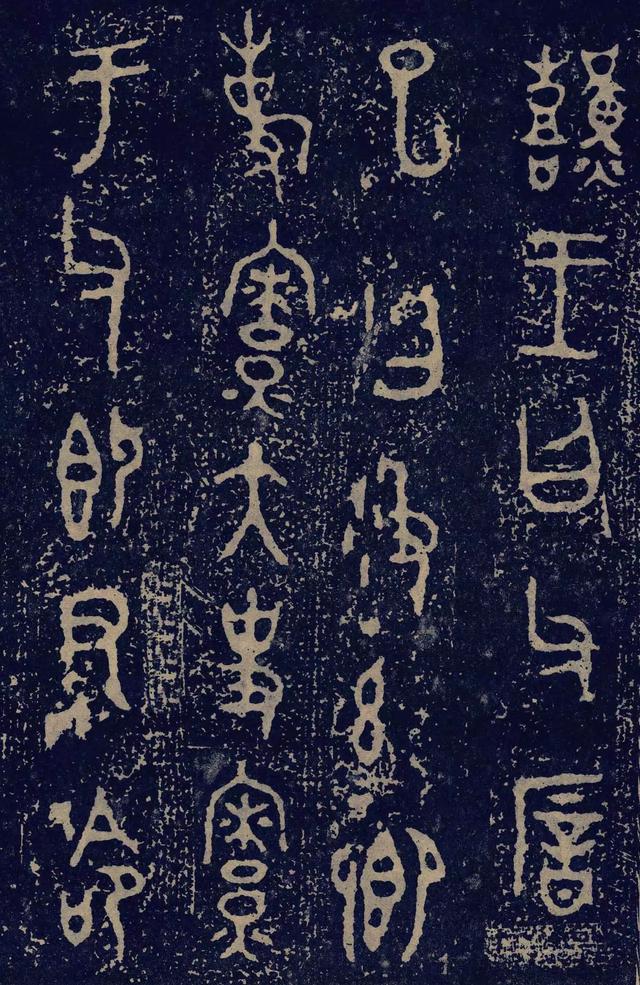 囏王曰父厝
巳曰及茲卿
事寮大史寮
于父即尹命